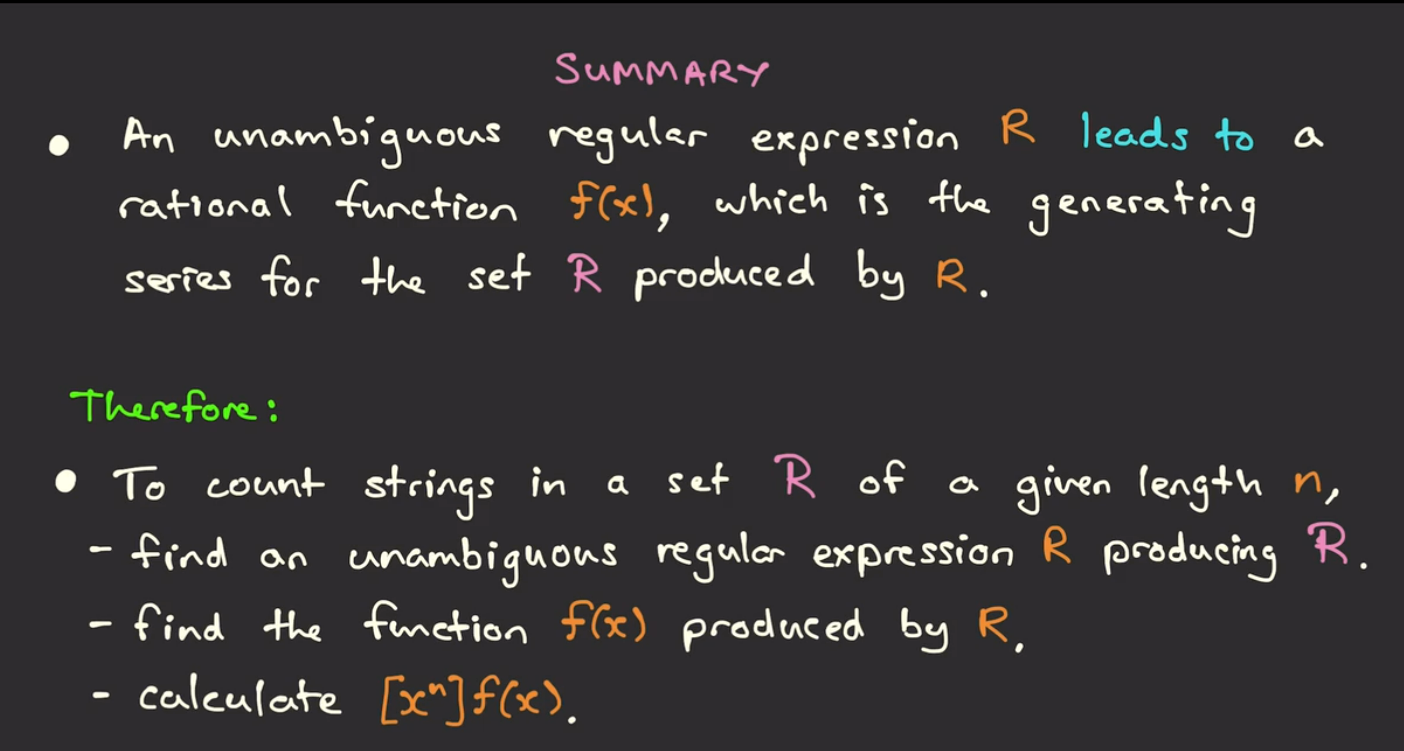 SUMMARY
• An unambiguous regular expression R leads to a
rational function f(x), which is the generating
series for the set R produced by R.
Therefore:
• To count strings in a set R of a given length n,
- find an unambiguous regular expression R producing R.
- find the function f(x) produced by R.
- calculate [xⁿ]f(x).